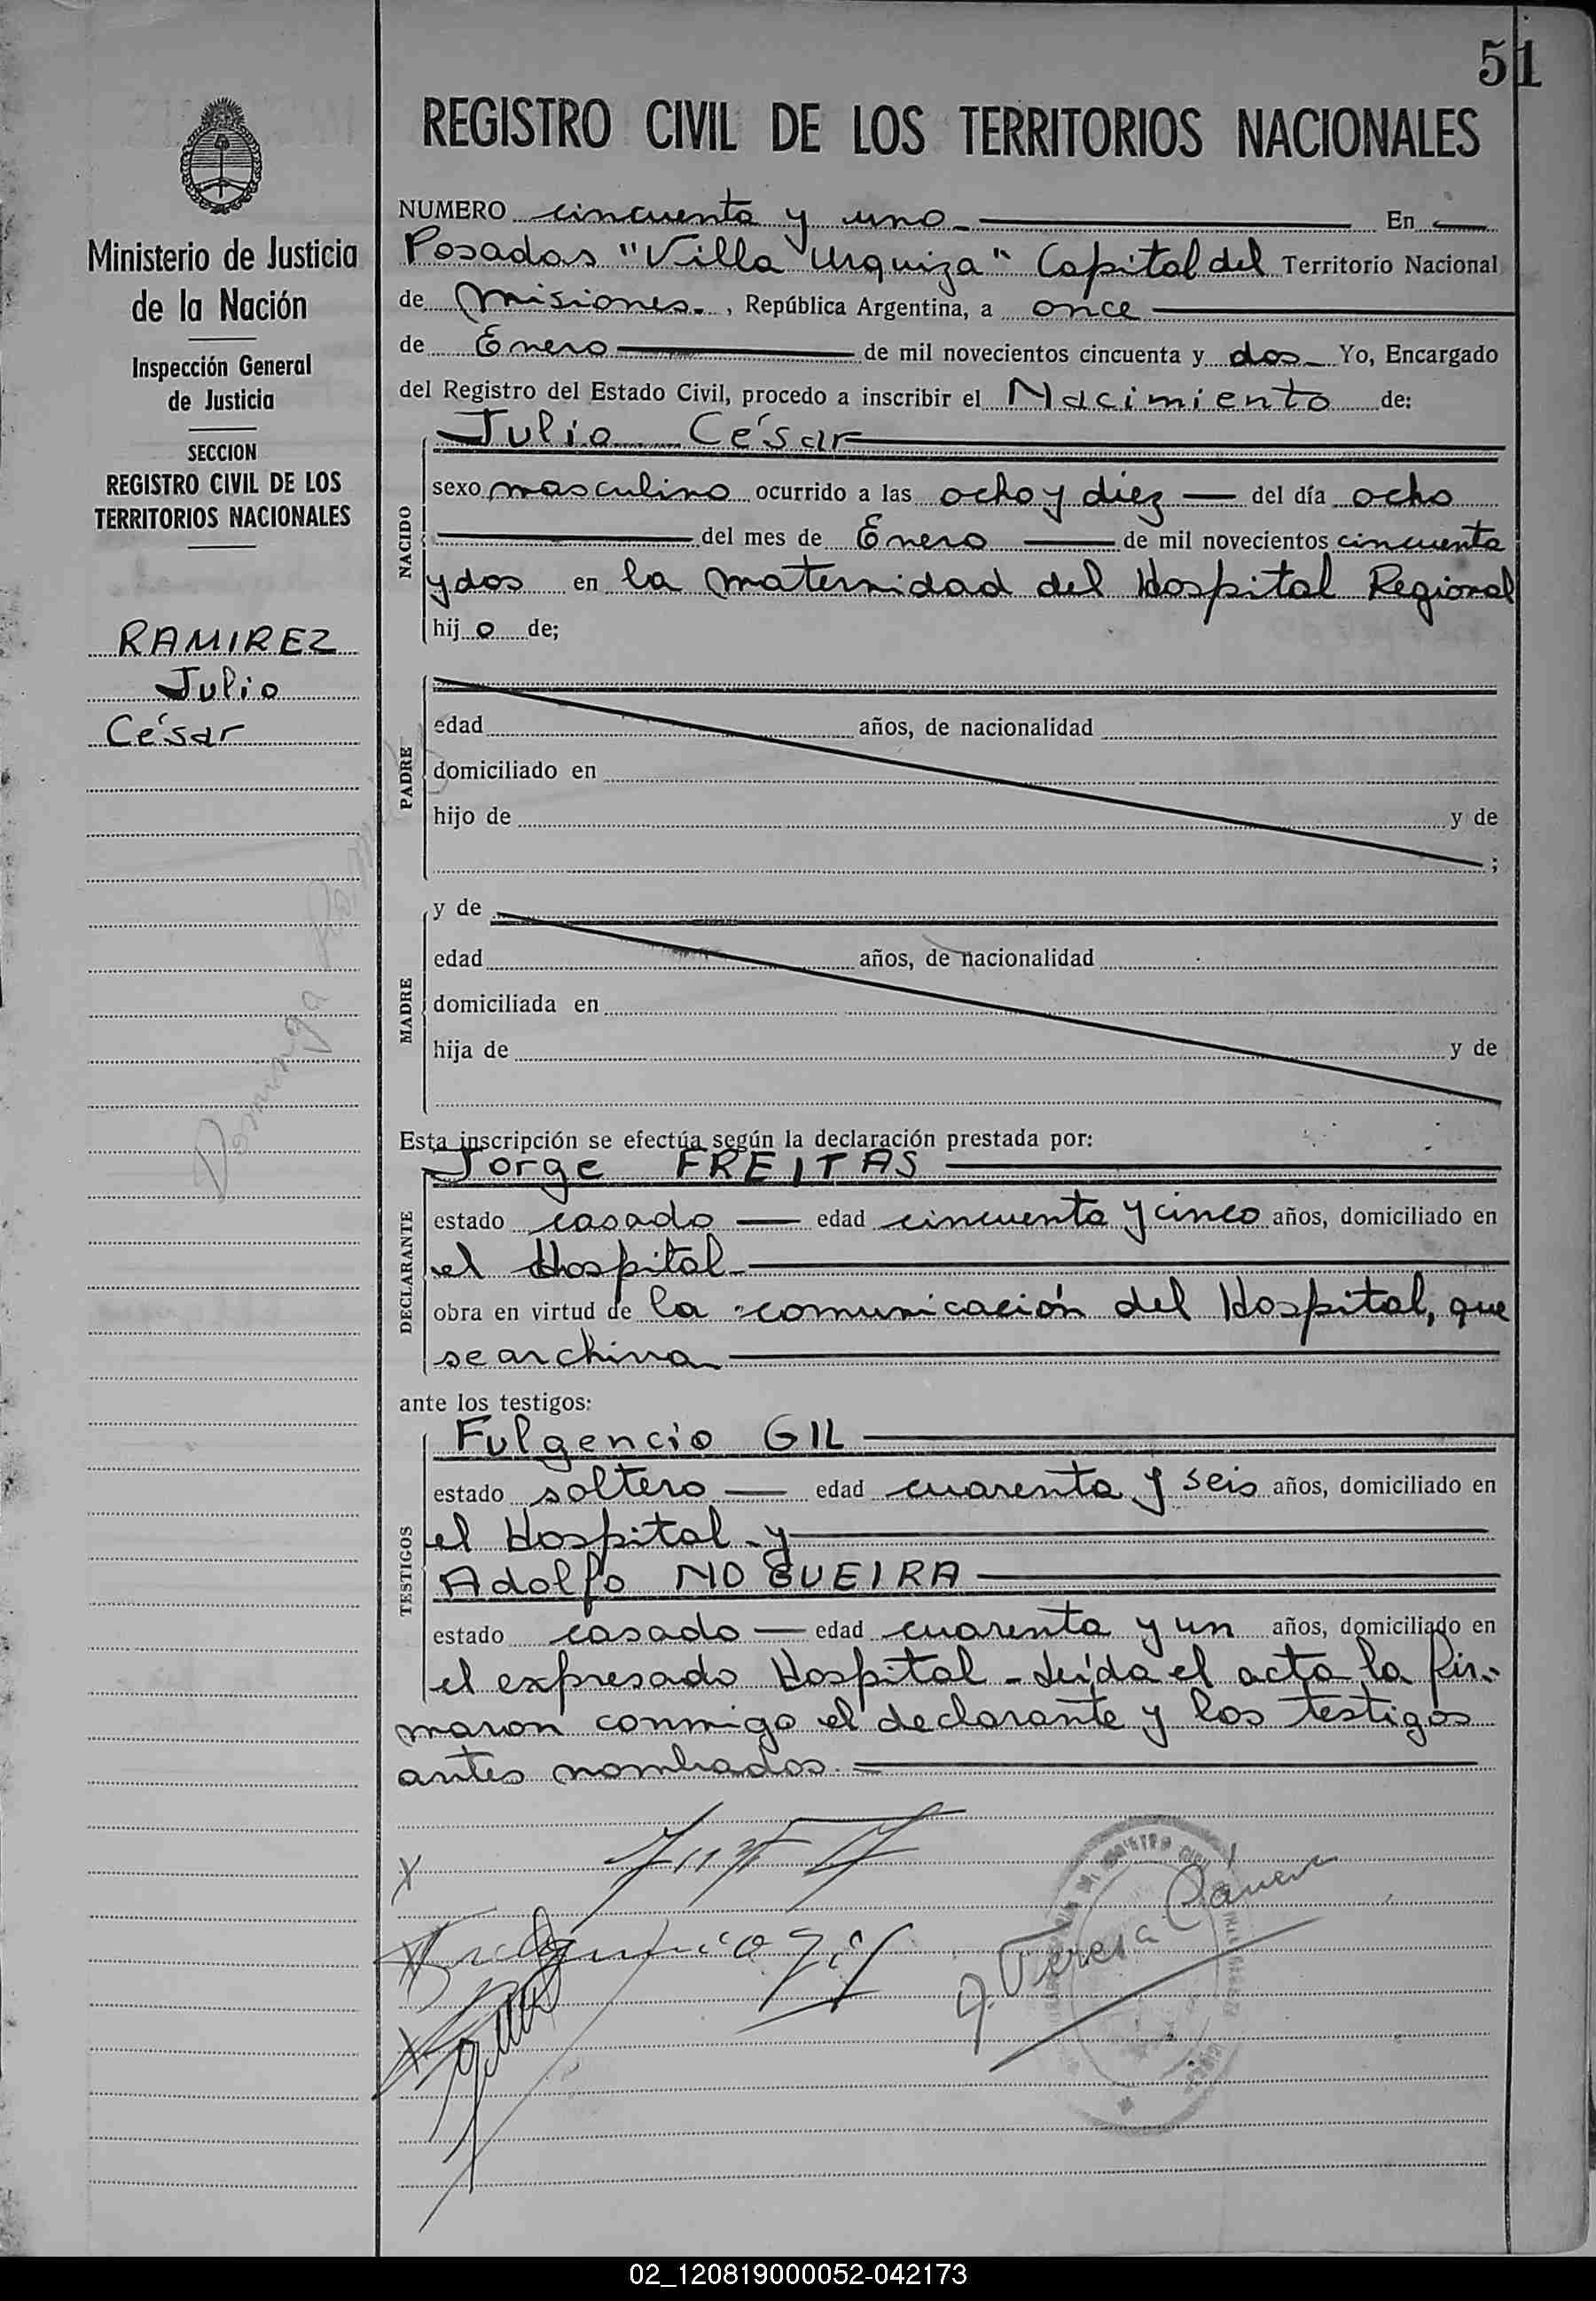 51
REGISTRO CIVIL DE LOS TERRITORIOS NACIONALES
Ministerio de Justicia
de la Nación
Inspección General
de Justicia
SECCION
REGISTRO CIVIL DE LOS
TERRITORIOS NACIONALES
RAMIREZ
Julio
César
Dominga
NUMERO cincuenta y uno En
Posadas "Villa Urquiza" Capital del Territorio Nacional
de Misiones , República Argentina, a once
de Enero de mil novecientos cincuenta y dos Yo, Encargado
del Registro del Estado Civil, procedo a inscribir el Nacimiento de:
NACIDO
Julio César
sexo masculino ocurrido a las ocho y diez del día ocho
del mes de Enero de mil novecientos cincuenta
y dos en la maternidad del Hospital Regional
hij o de;
PADRE
edad años, de nacionalidad
domiciliado en
hijo de y de
;
MADRE
y de
edad años, de nacionalidad
domiciliada en
hija de y de
Esta inscripción se efectúa según la declaración prestada por:
DECLARANTE
Jorge FREITAS
estado casado edad cincuenta y cinco años, domiciliado en
el Hospital
obra en virtud de la comunicación del Hospital, que
se archiva
ante los testigos:
TESTIGOS
Fulgencio GIL
estado soltero edad cuarenta y seis años, domiciliado en
el Hospital - y
Adolfo NOGUEIRA
estado casado edad cuarenta y un años, domiciliado en
el expresado Hospital - Leída el acta la fir-
maron conmigo el declarante y los testigos
antes nombrados.
Fulgencio Gil
J. Teresa
02_120819000052-042173